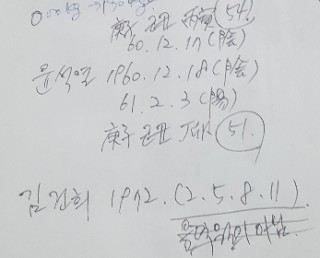 庚子 己丑 丙寅 (54.)
60.12.17(陰)
윤석열 1960.12.18(陰)
61.2.3(陽)
庚子 己丑 (51.)
김건희 1972.(2.5.8.11)